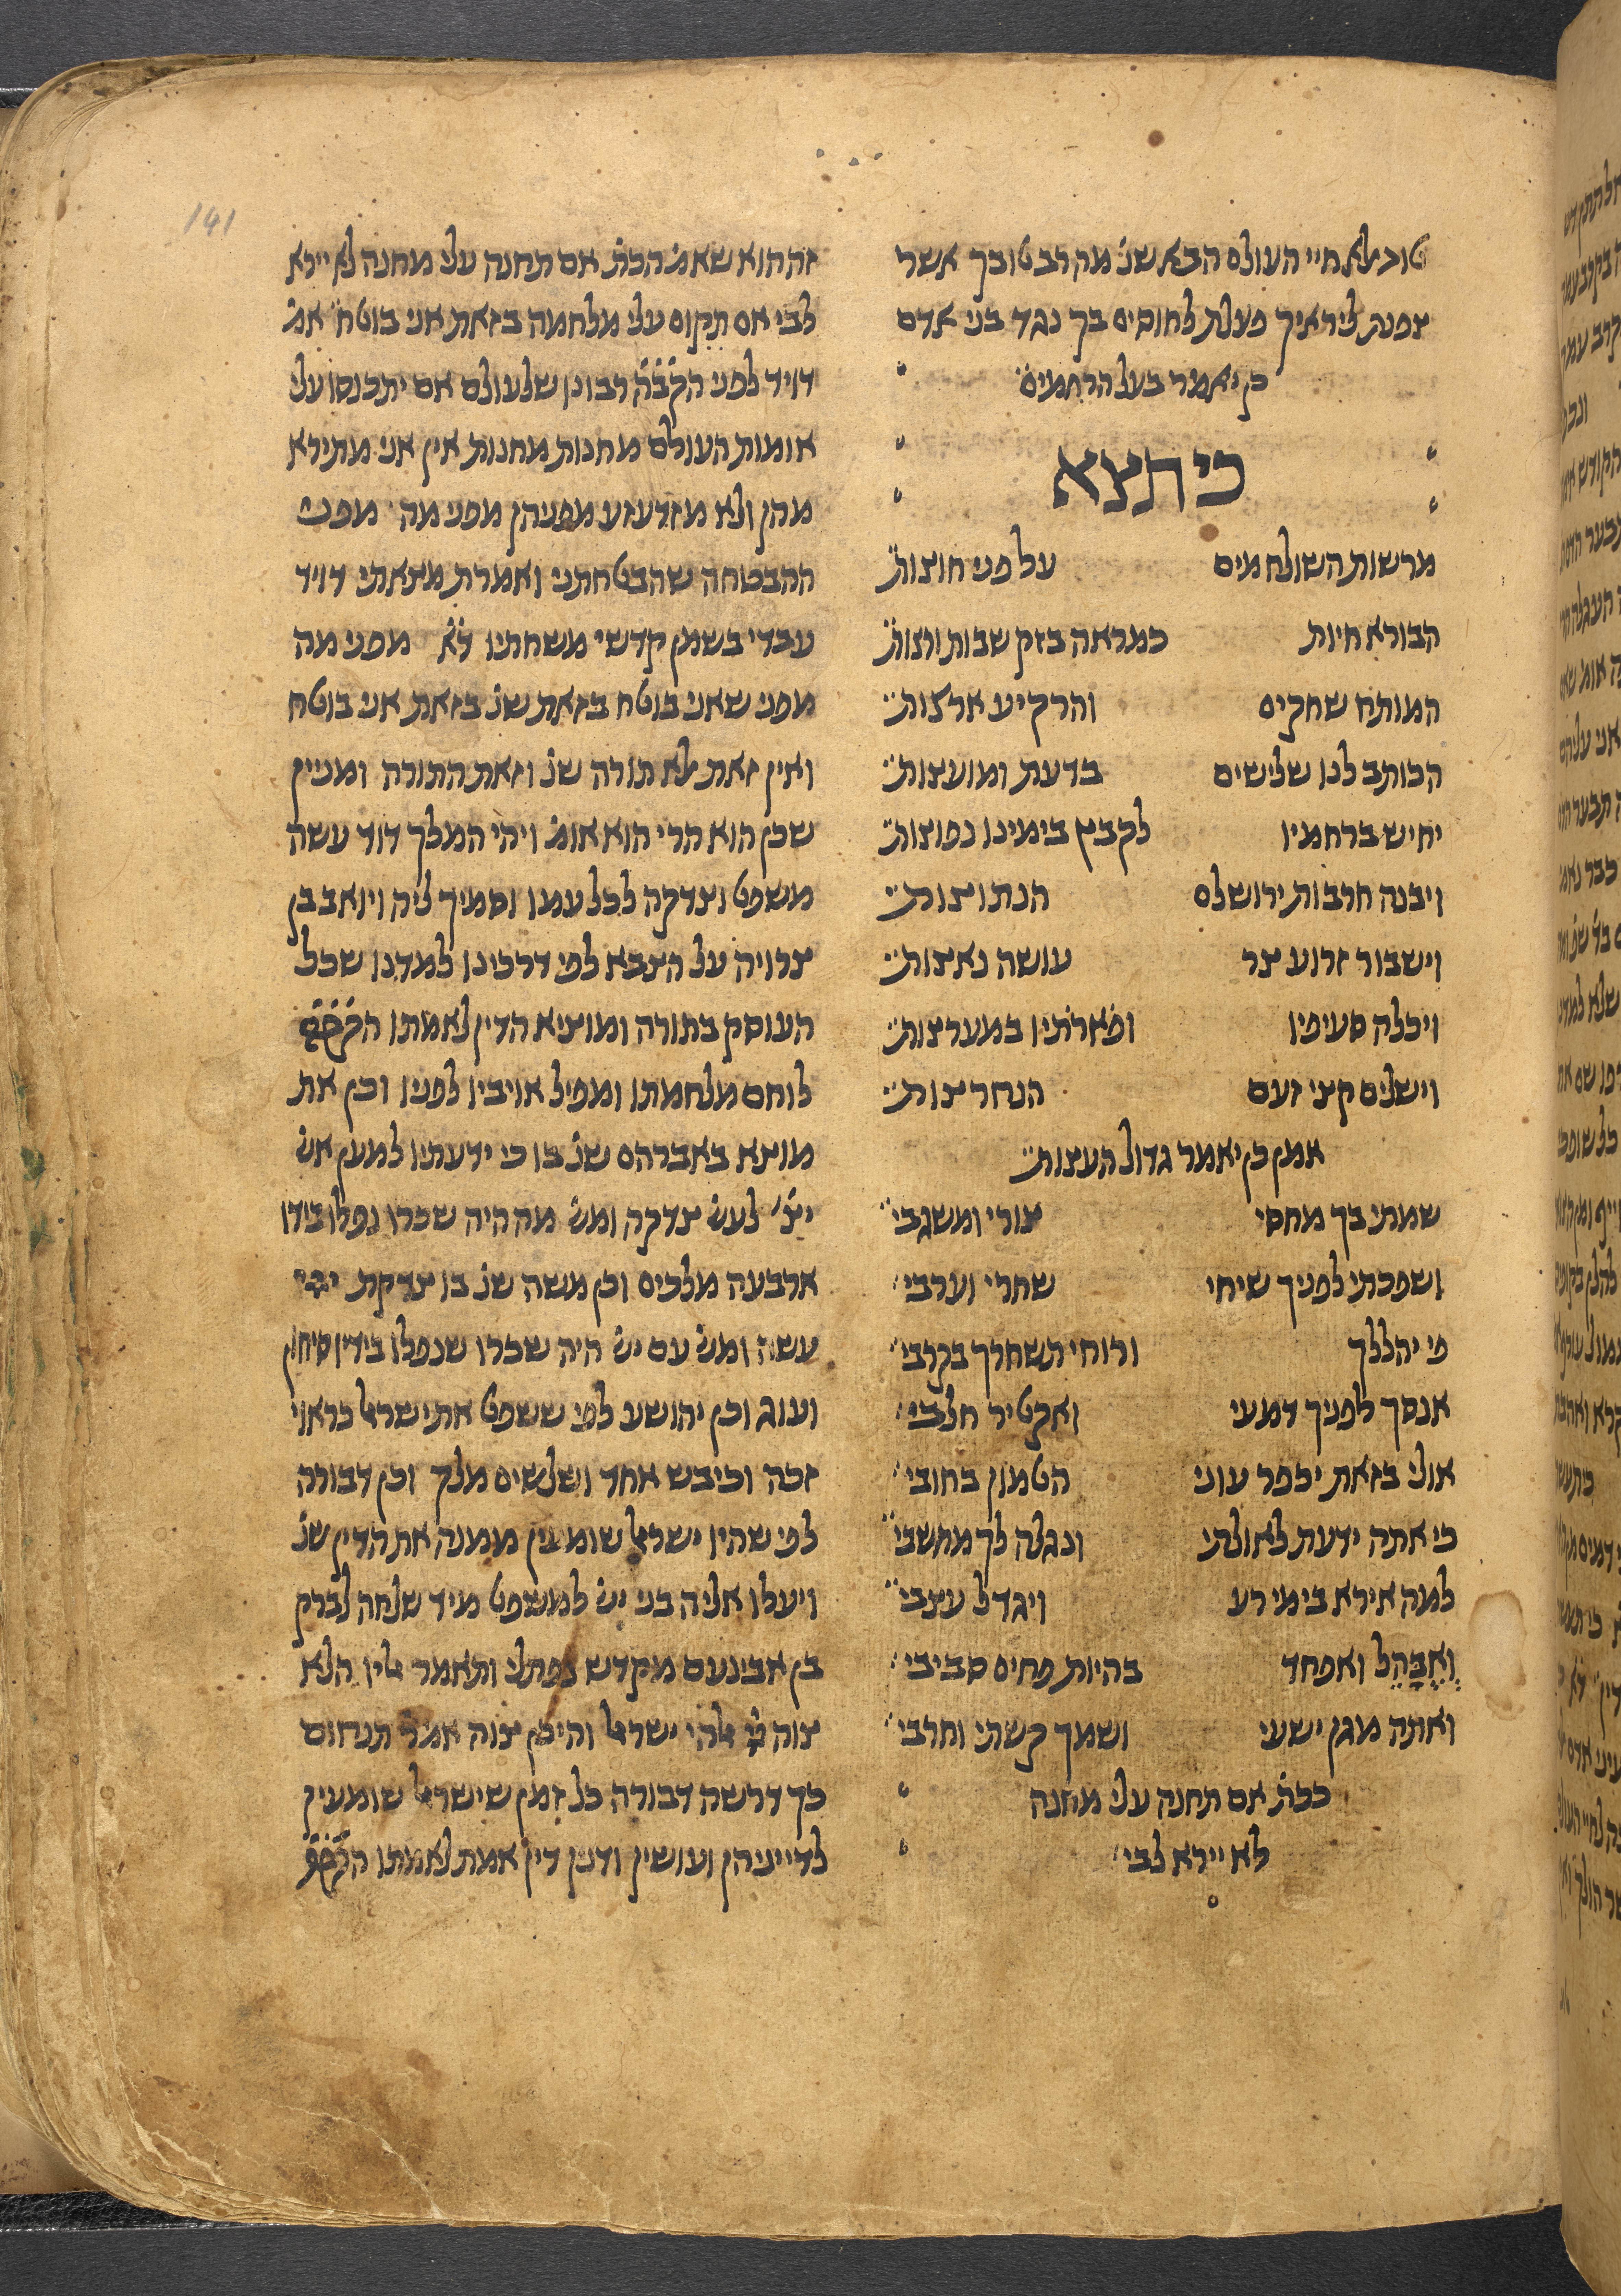 141
טוב אלא חיי העולם הבא שנ׳ מה רב טובך אשר
צפנת ליראיך פעלת לחוסים בך נגד בני אדם
כן יאמר בעל הרחמים
כי תצא
מרשות השולח מים על פני חוצות
הבורא חיות כמראה בזק שבות ורצות
המותח שחקים והרקיע ארצות
הכותב לנו שלישים בדעת ומועצות
יחיש ברחמיו לקבץ בימינו נפוצות
ויבנה חרבות ירושלם הנתוצות
וישבור זרוע צר עושה נאצות
ויכלה סעיפיו ופארתיו במערצות
וישלים קצי זעם הנחרצות
אמן כן יאמר גדול העצות
שמתי בך מחסי צורי ומשגבי
ושפכתי לפניך שיחי שחרי וערבי
פי יהללך ורוחי תשחרך בקרבי
אנסך לפניך דמעי ואקטיר חלבי
אולי בזאת יכפר עוני הטמון בחובי
כי אתה ידעת לאולתי ונגלה לך מחשבי
למה אירא בימי רע ויגדל עצבי
וְאֶבָּהֵל ואפחד בהיות פחים סביבי
ואתה מגן ישעי ושמך קשתי וחרבי
ככת׳ אם תחנה עלי מחנה
לא יירא לבי
זה הוא שאמ׳ הכת׳ אם תחנה עלי מחנה לא יירא
לבי אם תקום עלי מלחמה בזאת אני בוטח אמ׳
דויד לפני הקב̇ה̇ רבונו שלעולם אם יתכנסו עלי
אומות העולם מחנות מחנות אין אני מתירא
מהן ולא מזדעזע מפניהן מפני מה מפני
ההבטחה שהבטחתני ואמרת מצאתי דויד
עבדי בשמן קדשי משחתיו ד̇א̇ מפני מה
מפני שאני בוטח בזאת שנ׳ בזאת אני בוטח
ואין זאת אלא תורה שנ׳ וזאת התורה ומניין
שכן הוא הרי הוא אומ׳ ויהי המלך דוד עשה
משפט וצדקה לכל עמו וסמיך ליה ויואב בן
צרויה על הצבא לפי דרכינו למדנו שכל
העוסק בתורה ומוציא הדין לאמתו הקב̇ה̇
לוחם מלחמתו ומפיל אויביו לפניו וכן את
מוצא באברהם שנ׳ בו כי ידעתיו למען אש׳
יצ׳ לעש׳ צדקה ומש׳ מה היה שכרו נפלו בידו
ארבעה מלכים וכן משה שנ׳ בו צדקת ייי
עשה ומש׳ עם יש׳ היה שכרו שנפלו בידיו סיחון
ועוג וכן יהושע לפי ששפט את ישראל כראוי
זכה וכיבש אחד ושלשים מלך וכן דבורה
לפי שהיו ישראל שומעין ממנה את הדין שנ׳
ויעלו אליה בני יש׳ למשפט מיד שלחה לברק
בן אבינעם מקדש נפתלי ותאמר אליו הלא
צוה ייי אלהי ישראל והיכן צוה אמר תנחום
כך דרשה דבורה כל זמן שישראל שומעין
לדייניהן ועושין ודנין דין אמת לאמתו הקב̇ה̇